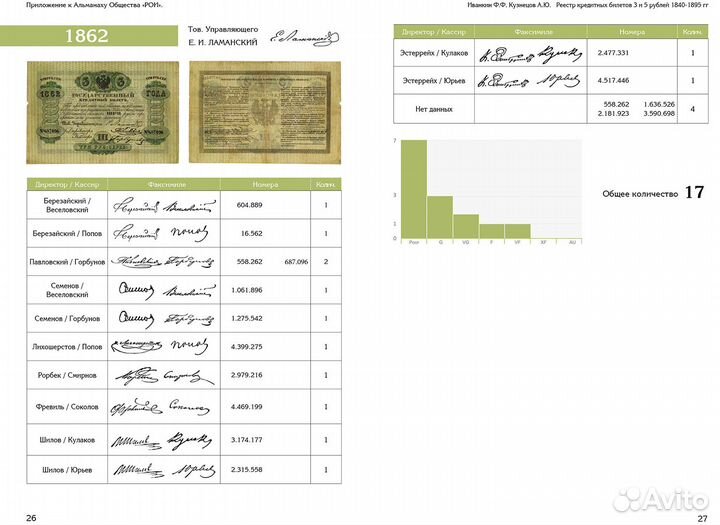 Приложение к Альманаху Общества «РОИ».
1862
Тов. Управляющего
Е. И. ЛАМАНСКИЙ
3 3
1862 ГОДА
ГОСУДАРСТВЕННЫЙ
КРЕДИТНЫЙ БИЛЕТЪ
III
Директор / Кассир Факсимиле Номера Колич.
Березайский / Веселовский 604.889 1
Березайский / Попов 16.562 1
Павловский / Горбунов 558.262 687.096 2
Семенов / Веселовский 1.061.896 1
Семенов / Горбунов 1.275.542 1
Лихошерстов / Попов 4.399.275 1
Рорбек / Смирнов 2.979.216 1
Фревиль / Соколов 4.469.199 1
Шилов / Кулаков 3.174.177 1
Шилов / Юрьев 2.315.558 1
26
Иванкин Ф.Ф. Кузнецов А.Ю. Реестр кредитных билетов 3 и 5 рублей 1840-1895 гг
Директор / Кассир Факсимиле Номера Колич.
Эстеррейх / Кулаков 2.477.331 1
Эстеррейх / Юрьев 4.517.446 1
Нет данных 558.262 1.636.526 4
2.181.923 3.590.698
7
3
1
0
Poor G VG F VF XF AU
Общее количество 17
27
Avito